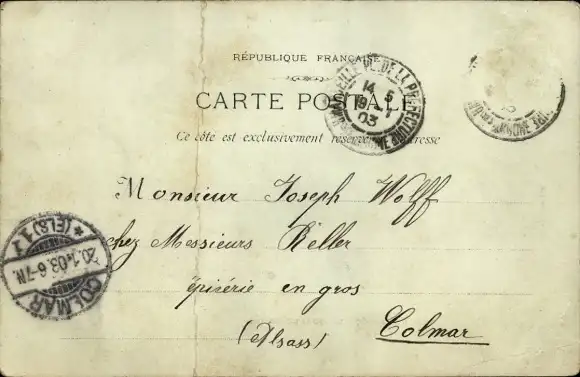 RÉPUBLIQUE FRANÇAISE
CARTE POSTALE
Ce côté est exclusivement réservé à l'adresse
MARSEILLE PL. DE LA PREFECTURE
14 5
19 - 1
03
Monsieur Joseph Wolff
chez Messieurs Keller
épicérie en gros
(Alsass) Colmar
COLMAR
* (ELS) 1
20.1.03. 6-7N.